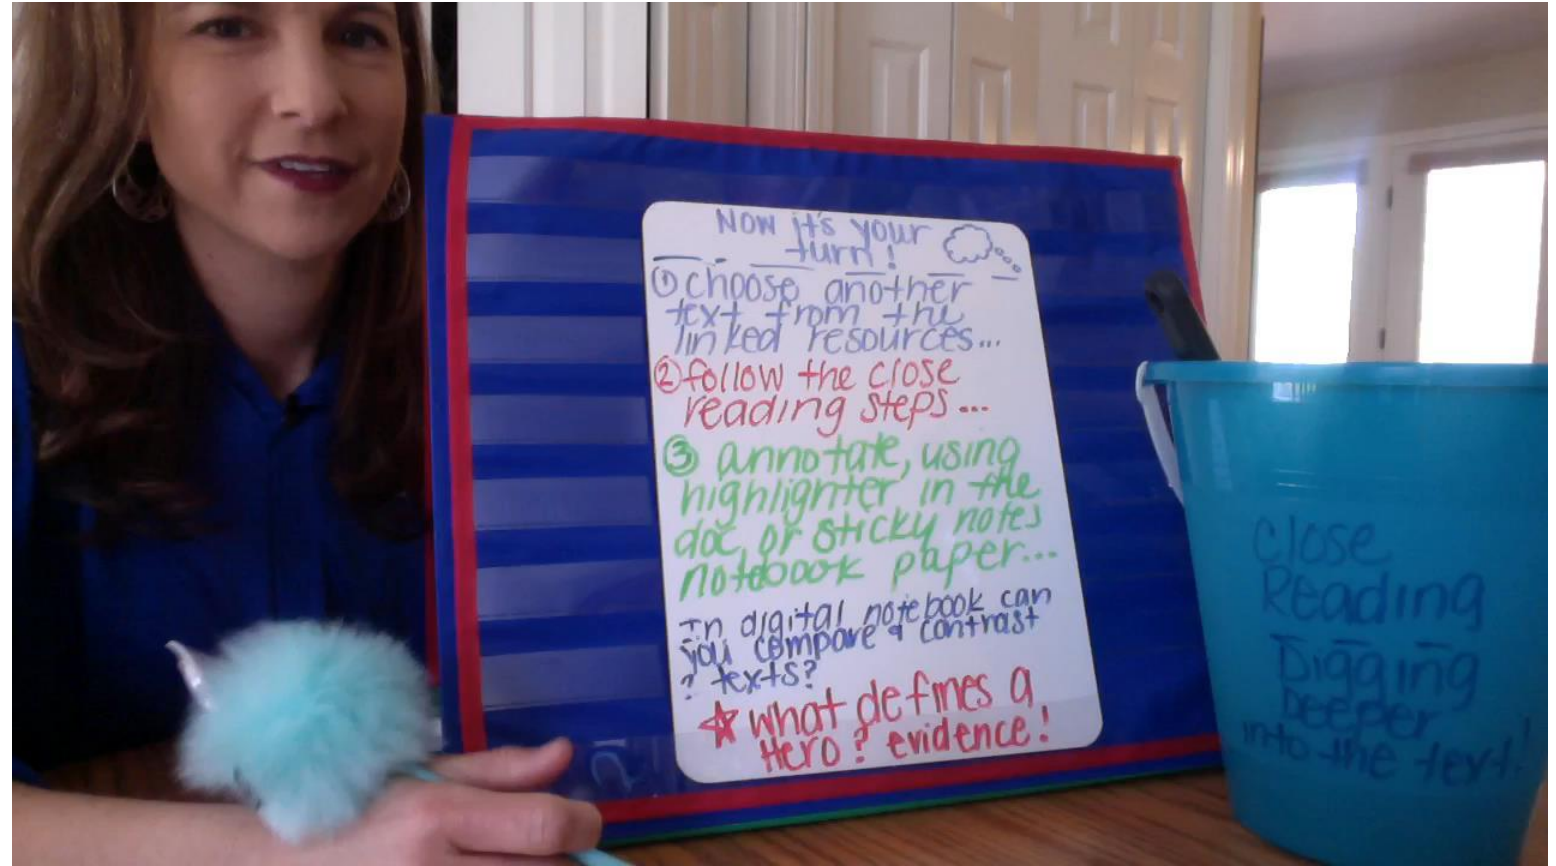 Now it's your
turn!
① choose another
text from the
linked resources...
② follow the close
reading steps...
③ annotate, using
highlighter in the
doc, or sticky notes
notebook paper...
In digital notebook can
you compare & contrast
2 texts?
☆ what defines a
Hero? evidence!
Close
Reading
Digging
Deeper
into the text!